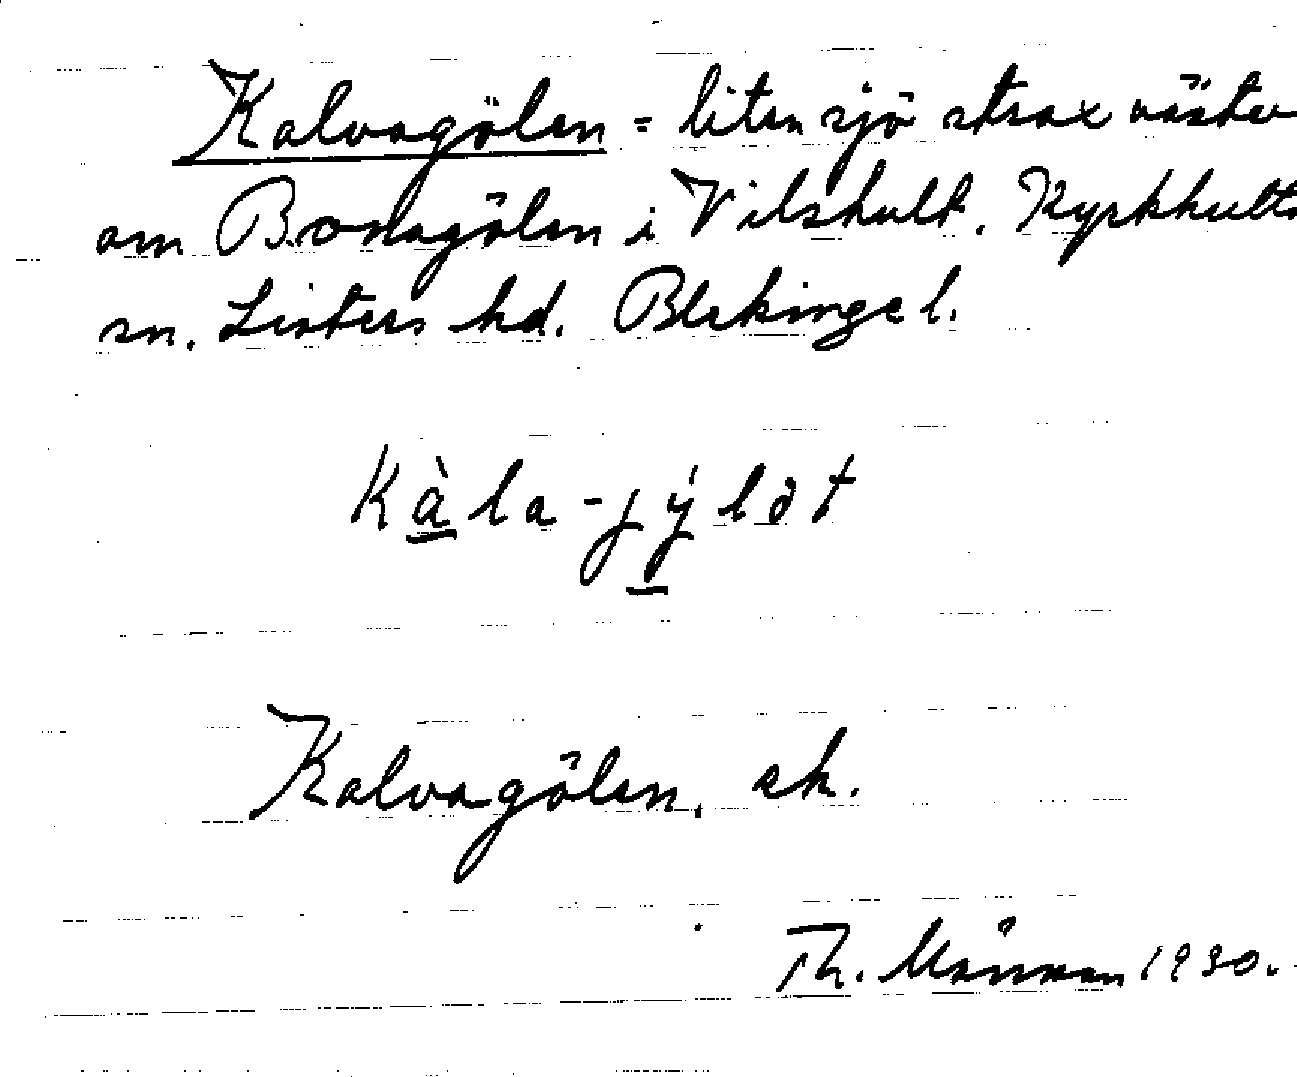 Kalvagölen = liten sjö strax väster
om Bonagölen i Vilshult. Kyrkhults
sn. Listers hd. Blekinge l.
Kàla-jýlət
Kalvagölen, ek.
Th. Månsson 1930.